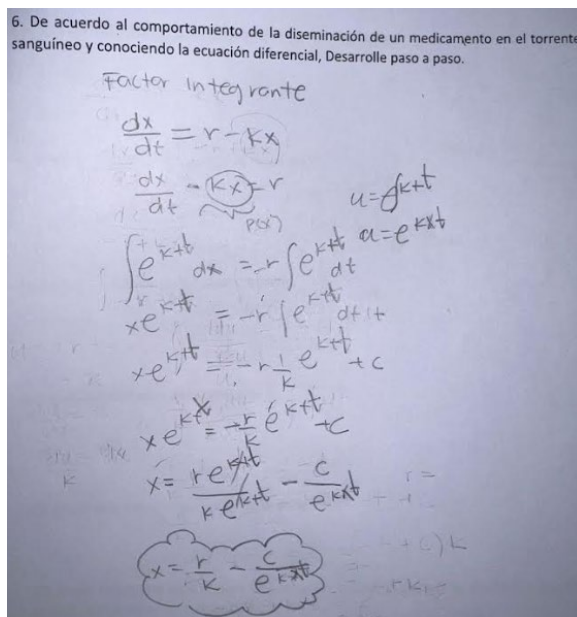 6. De acuerdo al comportamiento de la diseminación de un medicamento en el torrente
sanguíneo y conociendo la ecuación diferencial, Desarrolle paso a paso.
Factor integrante
dx/dt = r - kx
dx/dt - kx = r
P(x)
u = ∫k+t
u = e^kxt
∫e^k+t dx = -r ∫e^k+t dt
xe^k+t = -r ∫e^k+t dt
xe^k+t = -r 1/k e^k+t + c
xe^k+t = -r/k e^k+t + c
x = re^k+t / ke^k+t - c / e^kxt
x = r/k - c / e^kxt